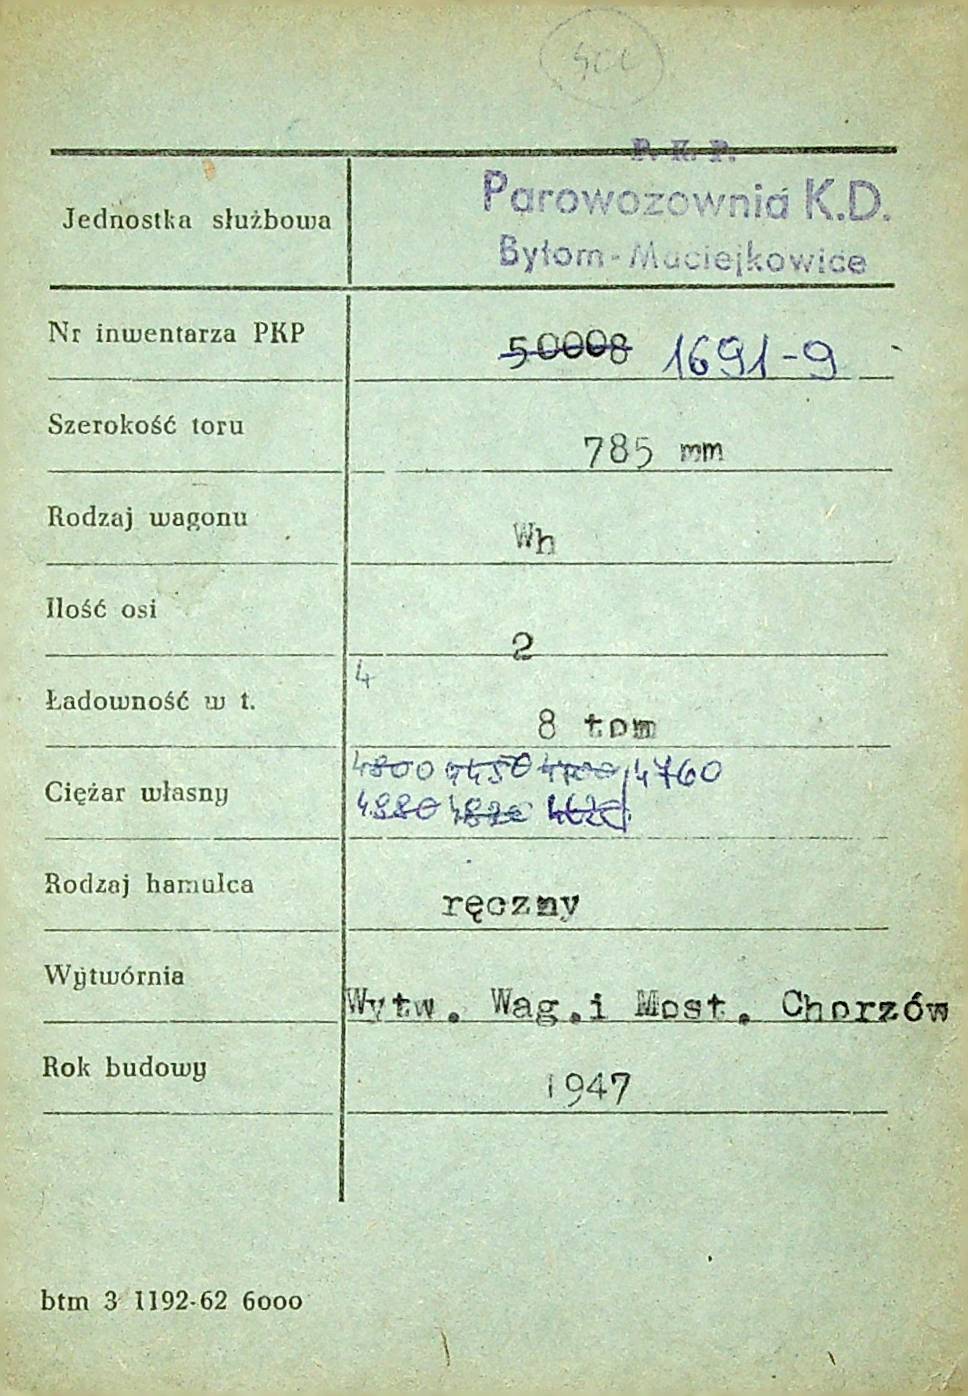 P. K. P.
Parowozownia K.D.
Jednostka służbowa
Bytom-Maciejkowice
Nr inwentarza PKP 50008 1691-9
Szerokość toru 785 mm
Rodzaj wagonu Wh
Ilość osi 2
4
Ładowność w t. 8 tom
4800 4450 4700 4760
Ciężar własny
4880 4820 4620
Rodzaj hamulca ręczny
Wytwórnia Wytw. Wag.i Most. Chorzów
Rok budowy 1947
btm 3 1192-62 6000